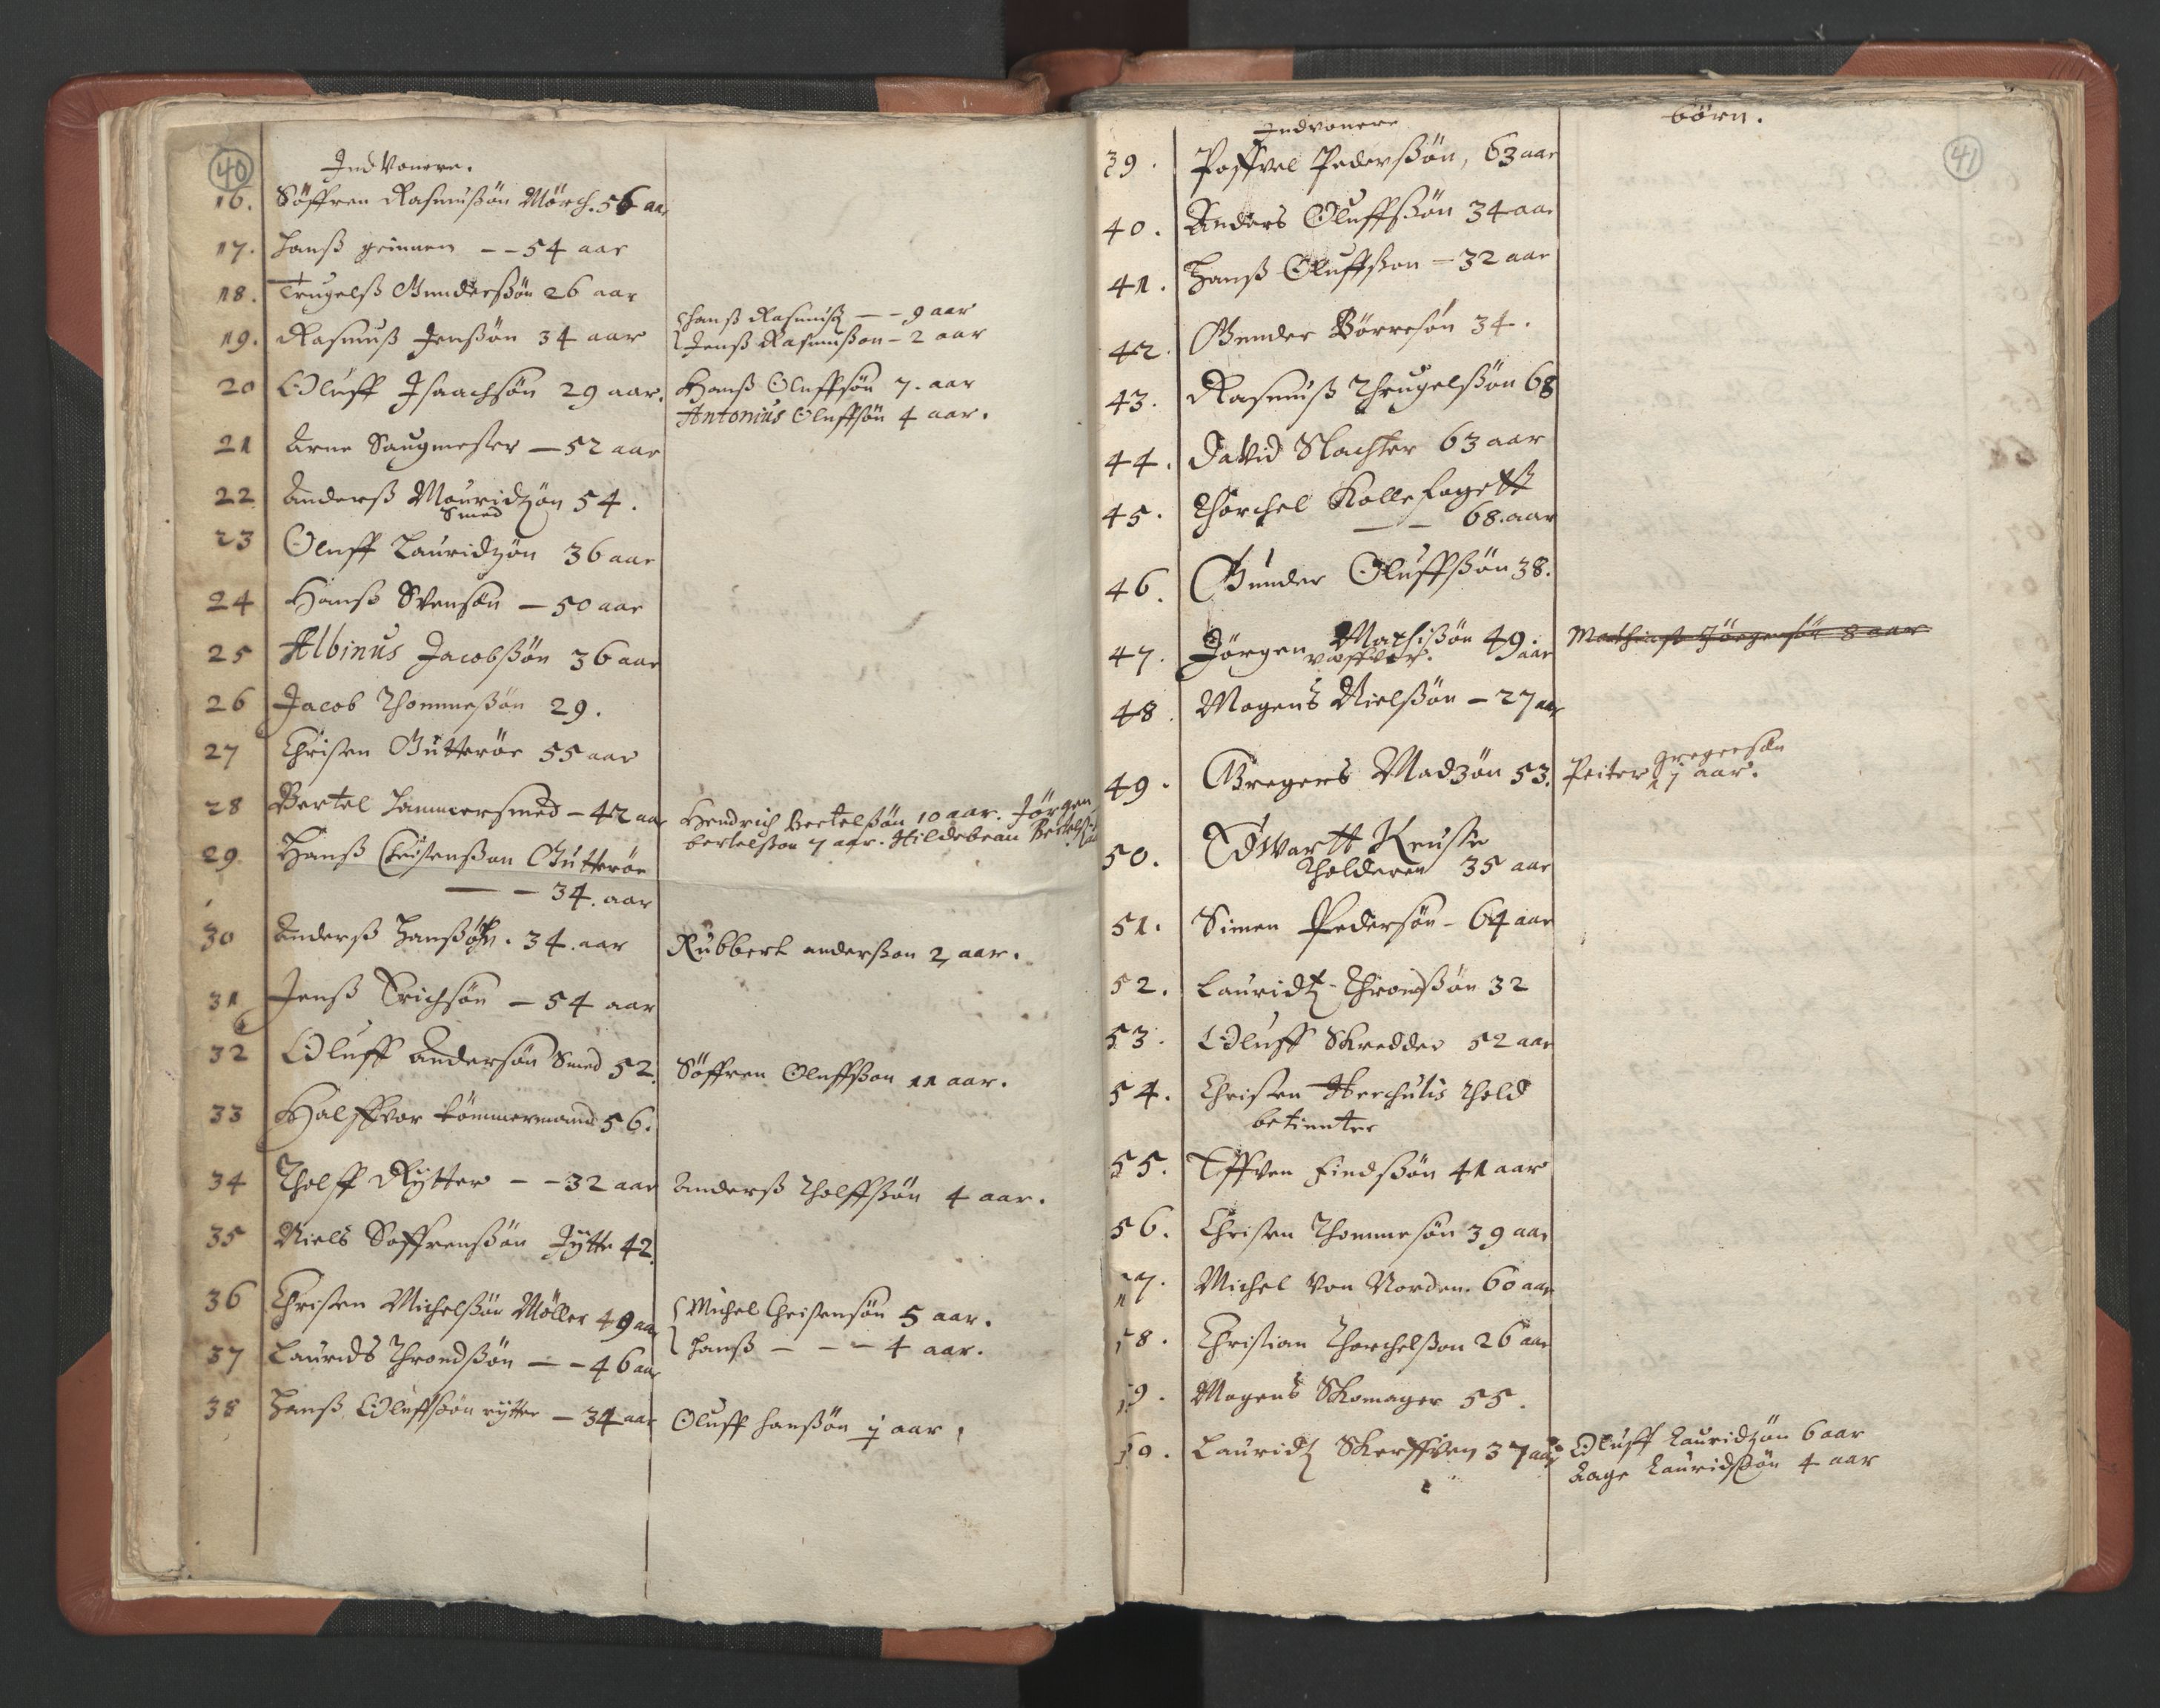 40
IndVonere.
16. Söffren Rasmußön Mörch. 56 aar
17. Hanß grinnem -- 54 aar
18. Trugelß Gunderßön 26 aar
19. Rasmuß Jenßön 34 aar
Hanß Rasmuß -- 9 aar
Jenß Rasmußon - 2 aar
20 Oluff Isaachsön 29 aar.
Hanß Oluffsön 7. aar
Antonius Oluffsön 4 aar.
21 Arne Saugmester — 52 aar
22 Anderß Mouridzön 54.
Smed
23 Oluff Lauridzön 36 aar
24 Hanß Svensön — 50 aar
25 Albinus Jacobßön 36 aar
26 Jacob Thommeßön 29.
27 Christen Gutterör 55 aar
28 Bertel Hammersmed - 42 aar
Hendrich Bertelßön 10 aar. Jörgen
bertelßon 7 aar. Hildebran Bertelß
29 Hanß Christenßon Gutterör
— — 34. aar
30 Anderß Hanßön. 34. aar
Rubbert anderßon 2 aar.
31 Jenß Erichsön — 54 aar
32 Oluff Andersön Smed 52.
Söffren Oluffßon 11 aar.
33 Halffvor tömmermand 56.
34 Tholff Rytter -- 32 aar
Anderß Tholffßön 4 aar.
35 Niels Soffrenßön Jÿtte 42.
36 Christen Michelßön Möller 49 aar
Michel Christensön 5 aar.
37 Laurids Throndßön -- 46 aar
Hanß - - - 4 aar.
38 Hanß Oluffßön rÿtter — 34 aar
Oluff Hanßön j aar
41
Indvonere
börn.
39. Poffvel Pederßön, 63 aar
40. Anders Oluffßön 34 aar
41. Hanß Oluffßon — 32 aar
42. Gunder Börresön 34.
43. Rasmuß Thrugelßön 68
44. David Slachter 63 aar
45. Thorchel Kollefogett
— — 68. aar
46. Gunder Oluffßön 38.
47. Jörgen Mathißön 49. aar
Mathias Jörgensön 8 aar
48. Mogens Nielßön - 27 aar
49. Gregers Madzön 53.
gregersön
Peiter 17 aar.
50. Edwartt Kruse
Tholderen 35 aar
51. Simen Pedersön - 64 aar
52. Lauridtz Throndßön 32
53. Oluff Skredder 52 aar
54. Christen Herchulis Told
betienter
55. Effven Findßön 41 aar
56. Christen Thommesön 39 aar
57. Michel Von Norden. 60 aar
58. Christian Thorchelßon 26 aar
59. Mogens Skomager 55.
60. Lauridtz Skreffven 37 aar
Oluff Lauridzön 6 aar
Aage Lauridßön 4 aar